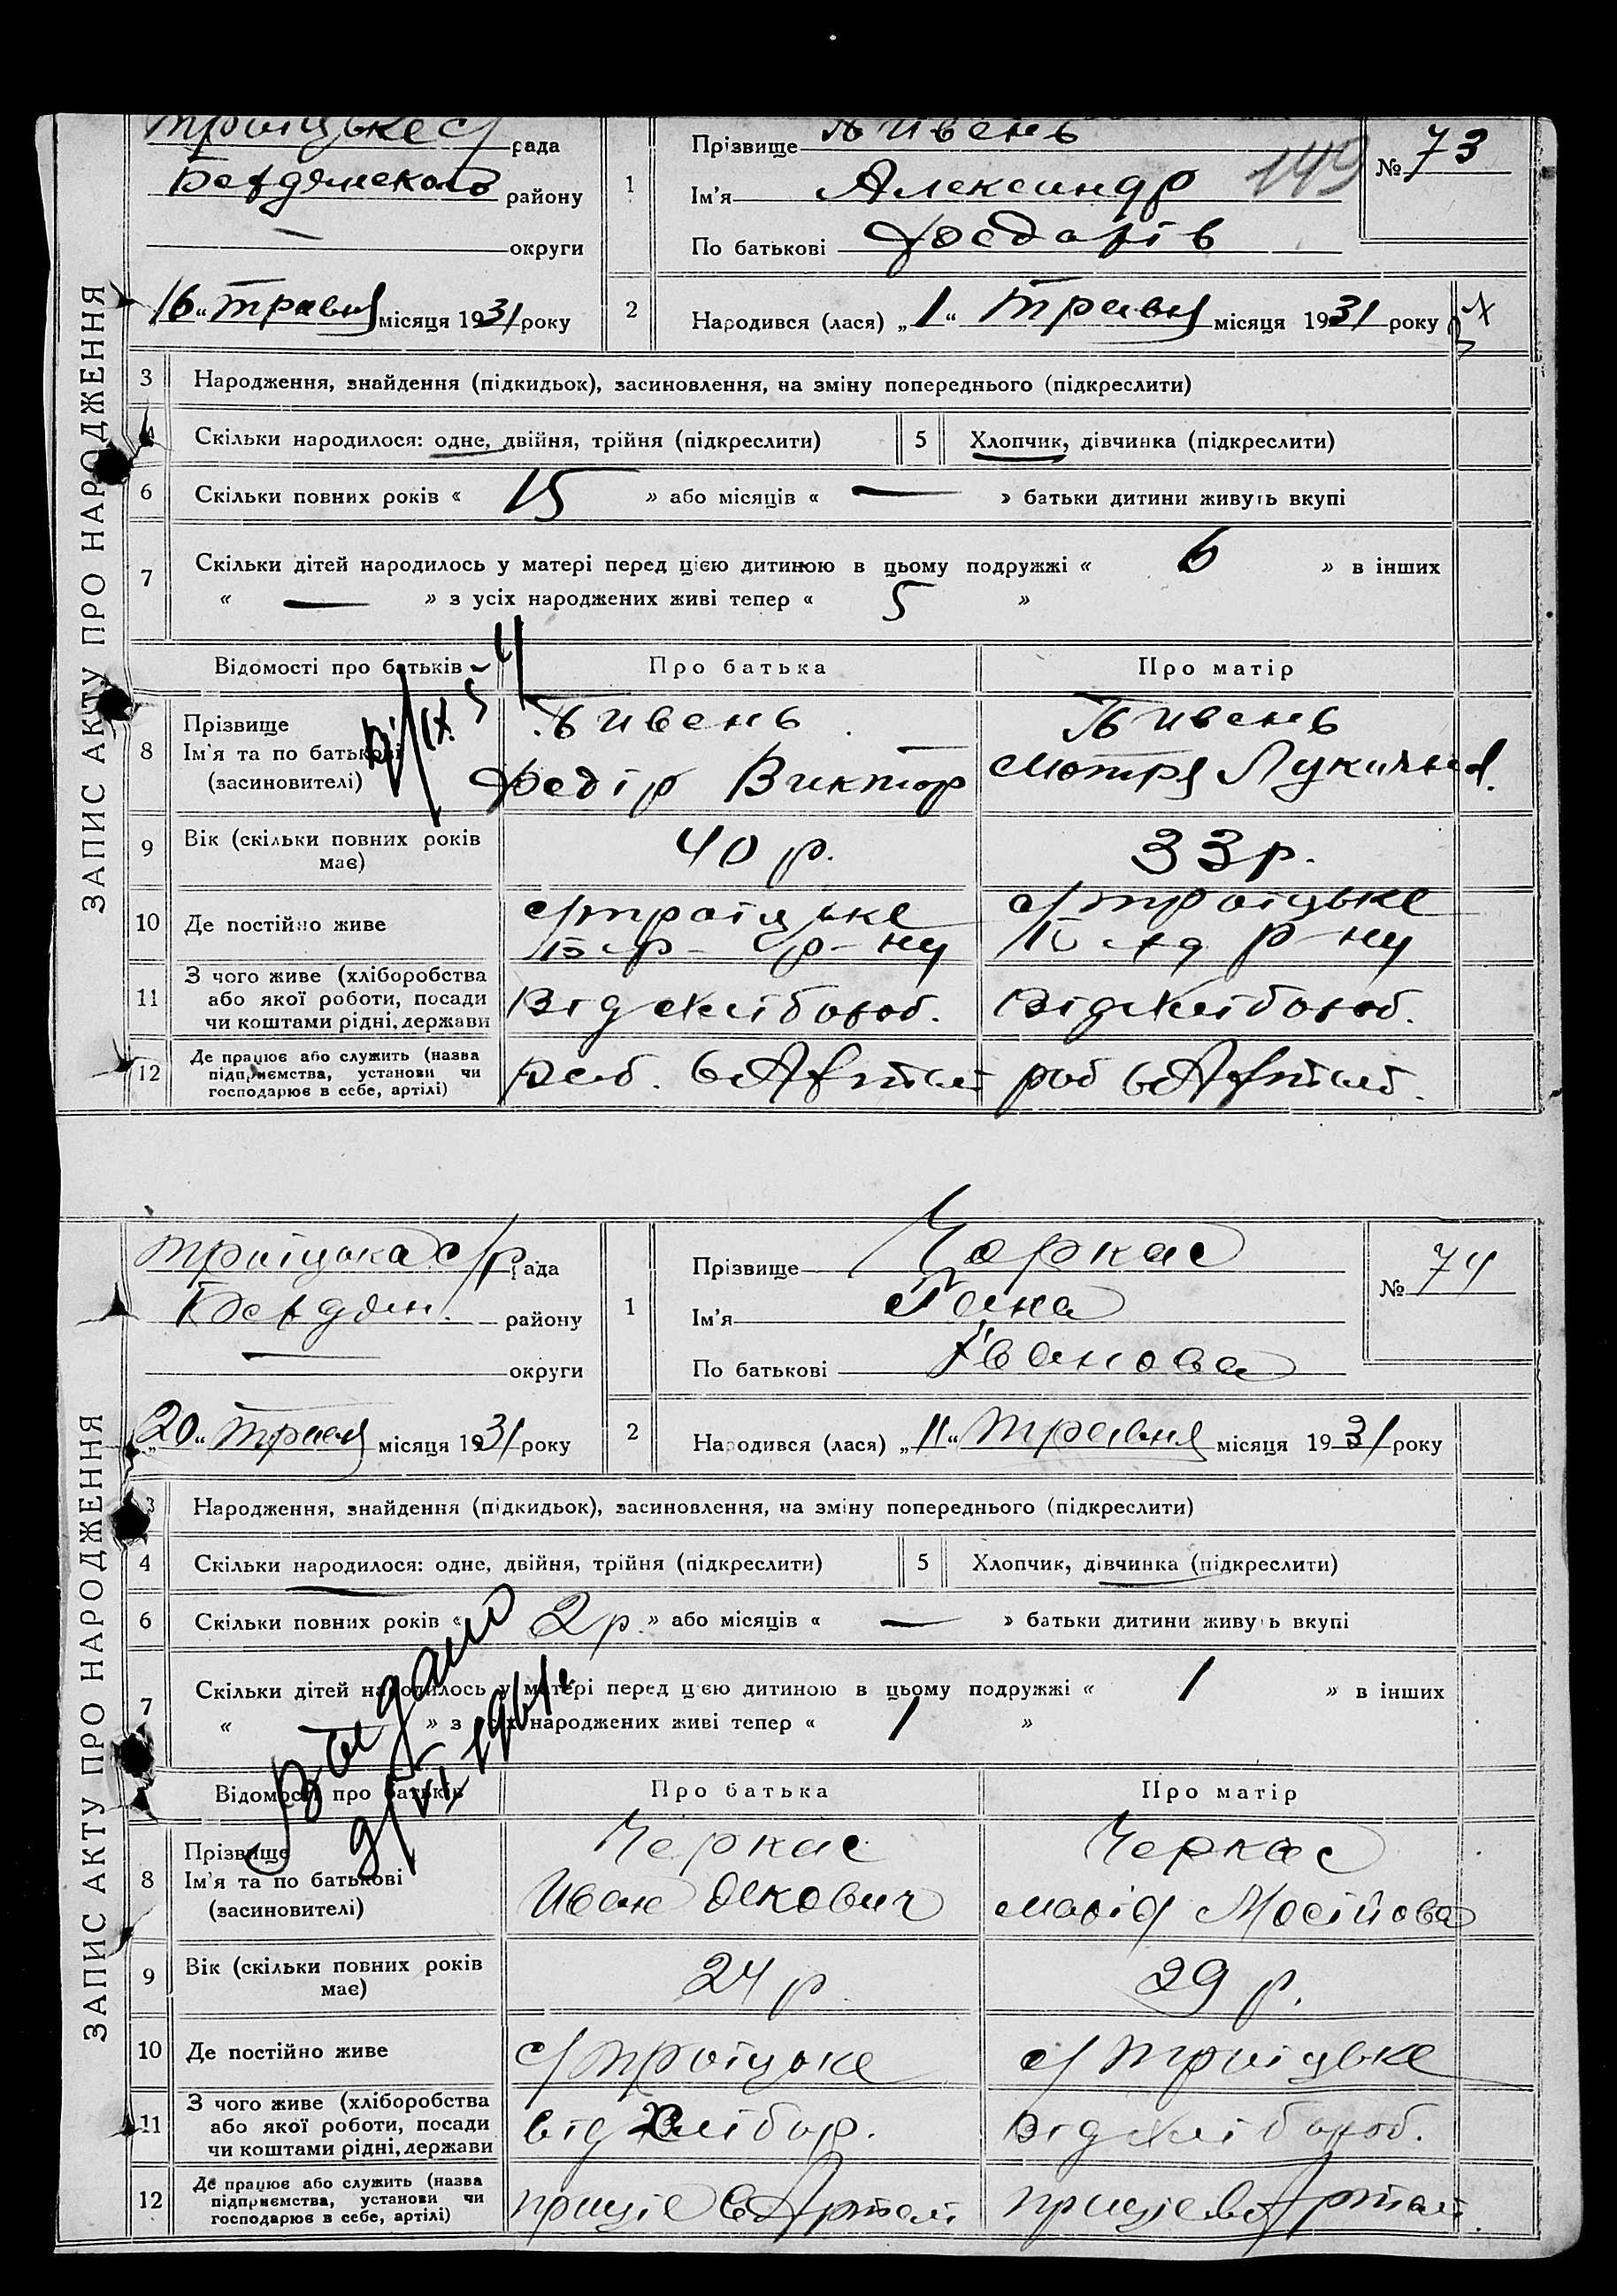 ЗАПИС АКТУ ПРО НАРОДЖЕННЯ
Троіцьке с/ рада
Бердянського району
— округи
16 „ травня місяця 1931 року
1 Прізвище Пивень
Ім'я Александр
По батькові
149
№ 73
2 Народився (лася) „1“ травня місяця 1931 року
3 Народження, знайдення (підкидьок), засиновлення, на зміну попереднього (підкреслити)
4 Скільки народилося: одне, двійня, трійня (підкреслити) 5 Хлопчик, дівчинка (підкреслити)
6 Скільки повних років « 15 » або місяців « — » батьки дитини живуть вкупі
7 Скільки дітей народилось у матері перед цією дитиною в цьому подружжі « 6 » в інших
« — » з усіх народжених живі тепер « 5 »
Відомості про батьків Про батька Про матір
8 Прізвище Пивень Пивень
Ім'я та по батькові Федір Виктор Мотря Лукична.
(засиновителі)
9 Вік (скільки повних років має) 40 р. 33 р.
10 Де постійно живе с/Троіцьке с/Троіцьке
Бер- р-ну Берд р-ну
11 З чого живе (хліборобства або якої роботи, посади чи коштами рідні, держави Від хлібороб. Від хлібороб.
12 Де працює або служить (назва підприємства, установи чи господарює в себе, артілі) роб. в Артілі роб в Артілі.
ЗАПИС АКТУ ПРО НАРОДЖЕННЯ
Троіцька с/р рада
Бердян. району
— округи
„20“ травня місяця 1931 року
1 Прізвище Черкас
Ім'я
По батькові Іванова
№ 74
2 Народився (лася) „11“ травня місяця 1931 року
3 Народження, знайдення (підкидьок), засиновлення, на зміну попереднього (підкреслити)
4 Скільки народилося: одне, двійня, трійня (підкреслити) 5 Хлопчик, дівчинка (підкреслити)
6 Скільки повних років « 2 р. » або місяців « — » батьки дитини живуть вкупі
7 Скільки дітей народилось у матері перед цією дитиною в цьому подружжі « 1 » в інших
« » з усіх народжених живі тепер « 1 »
Відомості про батьків Про батька Про матір
8 Прізвище Черкас Черкас
Ім'я та по батькові Иван Марія Мосійова
(засиновителі)
9 Вік (скільки повних років має) 24 р. 29 р.
10 Де постійно живе с/Троіцьке с/Троіцьке
11 З чого живе (хліборобства або якої роботи, посади чи коштами рідні, держави від хлібор. від хлібороб.
12 Де працює або служить (назва підприємства, установи чи господарює в себе, артілі) працює в Артелі працює в Артелі.